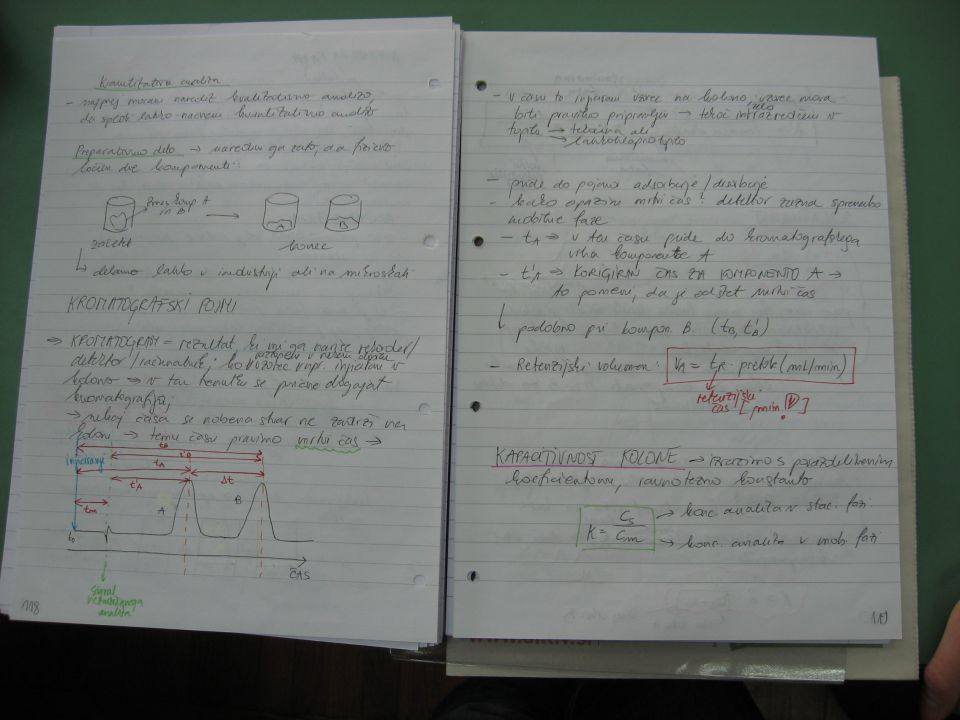 Kvantitativna analiza
- najprej moram naredit kvalitativno analizo
da sploh lahko načnem kvantitativno analizo
Preparativno delo → naredim ga zato, da fizično
ločim dve komponenti:
zmes komp. A
in B
A
B
začetek
konec
delamo lahko v industriji ali na mikroskali
KROMATOGRAFSKI POJMI
⇒ KROMATOGRAM = rezultat, ki mi ga nariše rekorder/
detektor/računalnik, ko vzorec injeciram v
kolono ⇒ v tem trenutku se prične dogajat
kromatografija;
→ nekaj časa se nobena stvar ne zadrži na
koloni → temu času pravimo mrtvi čas →
tB
t'B
Injiciranje
tA
Δt
t'A
tm
A
B
t0
ČAS
signal
nezadržanega
analita
118
- v času t0 injeciram vzorec na kolono, vzorec mora
biti pravilno pripravljen → tekoč zelo razredčen v
topilu → tekočina ali
→ lahkohlapno topilo
- pride do pojava adsorbcije/desorbcije
- kako opazimo mrtvi čas? detektor zazna spremembo
mobilne faze
- tA ⇒ v tem času pride do kromatografskega
vrha komponente A
- t'A ⇒ KORIGIRAN ČAS ZA KOMPONENTO A →
to pomeni, da je odštet mrtvi čas
podobno pri kompon. B. (tB, t'B)
- Retenzijski volumen: VA = tR · pretok (mL/min)
retenzijski
čas [min!]
KAPACITIVNOST KOLONE → izrazimo s porazdelitvenim
koeficientom, ravnotežno konstanto
K = Cs/Cm
→ konc. analita v stac. fazi
→ konc. analita v mob. fazi
119